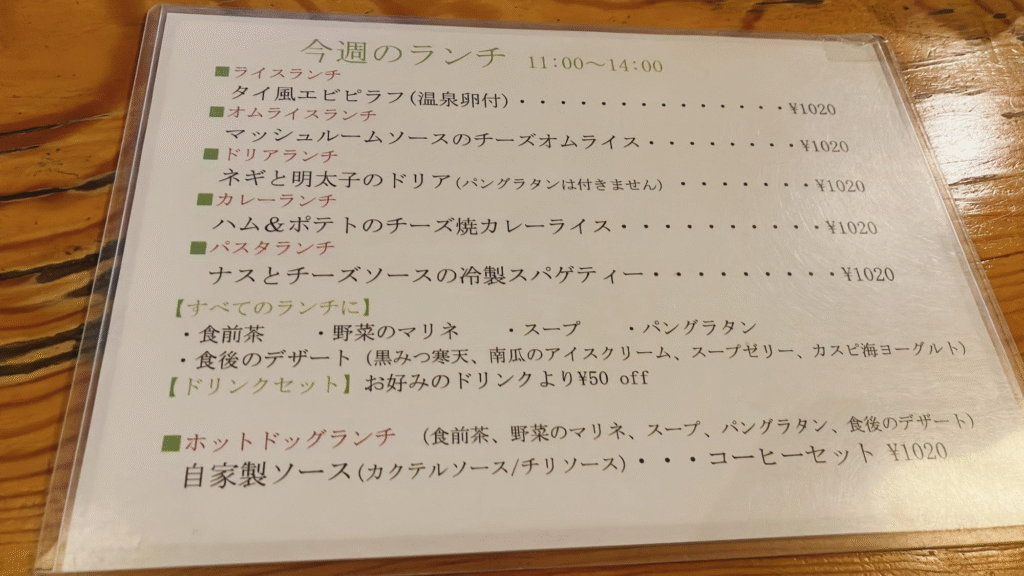 今週のランチ 11:00～14:00
■ライスランチ
タイ風エビピラフ(温泉卵付)・・・・・・・・・・・・・・・・・¥1020
■オムライスランチ
マッシュルームソースのチーズオムライス・・・・・・・・¥1020
■ドリアランチ
ネギと明太子のドリア(パングラタンは付きません) ・・・・・・・¥1020
■カレーランチ
ハム＆ポテトのチーズ焼カレーライス・・・・・・・・・・¥1020
■パスタランチ
ナスとチーズソースの冷製スパゲティー・・・・・・・・・¥1020
【すべてのランチに】
・食前茶 ・野菜のマリネ ・スープ ・パングラタン
・食後のデザート (黒みつ寒天、南瓜のアイスクリーム、スープゼリー、カスピ海ヨーグルト)
【ドリンクセット】お好みのドリンクより¥50 off
■ホットドッグランチ (食前茶、野菜のマリネ、スープ、パングラタン、食後のデザート)
自家製ソース(カクテルソース/チリソース)・・・コーヒーセット ¥1020